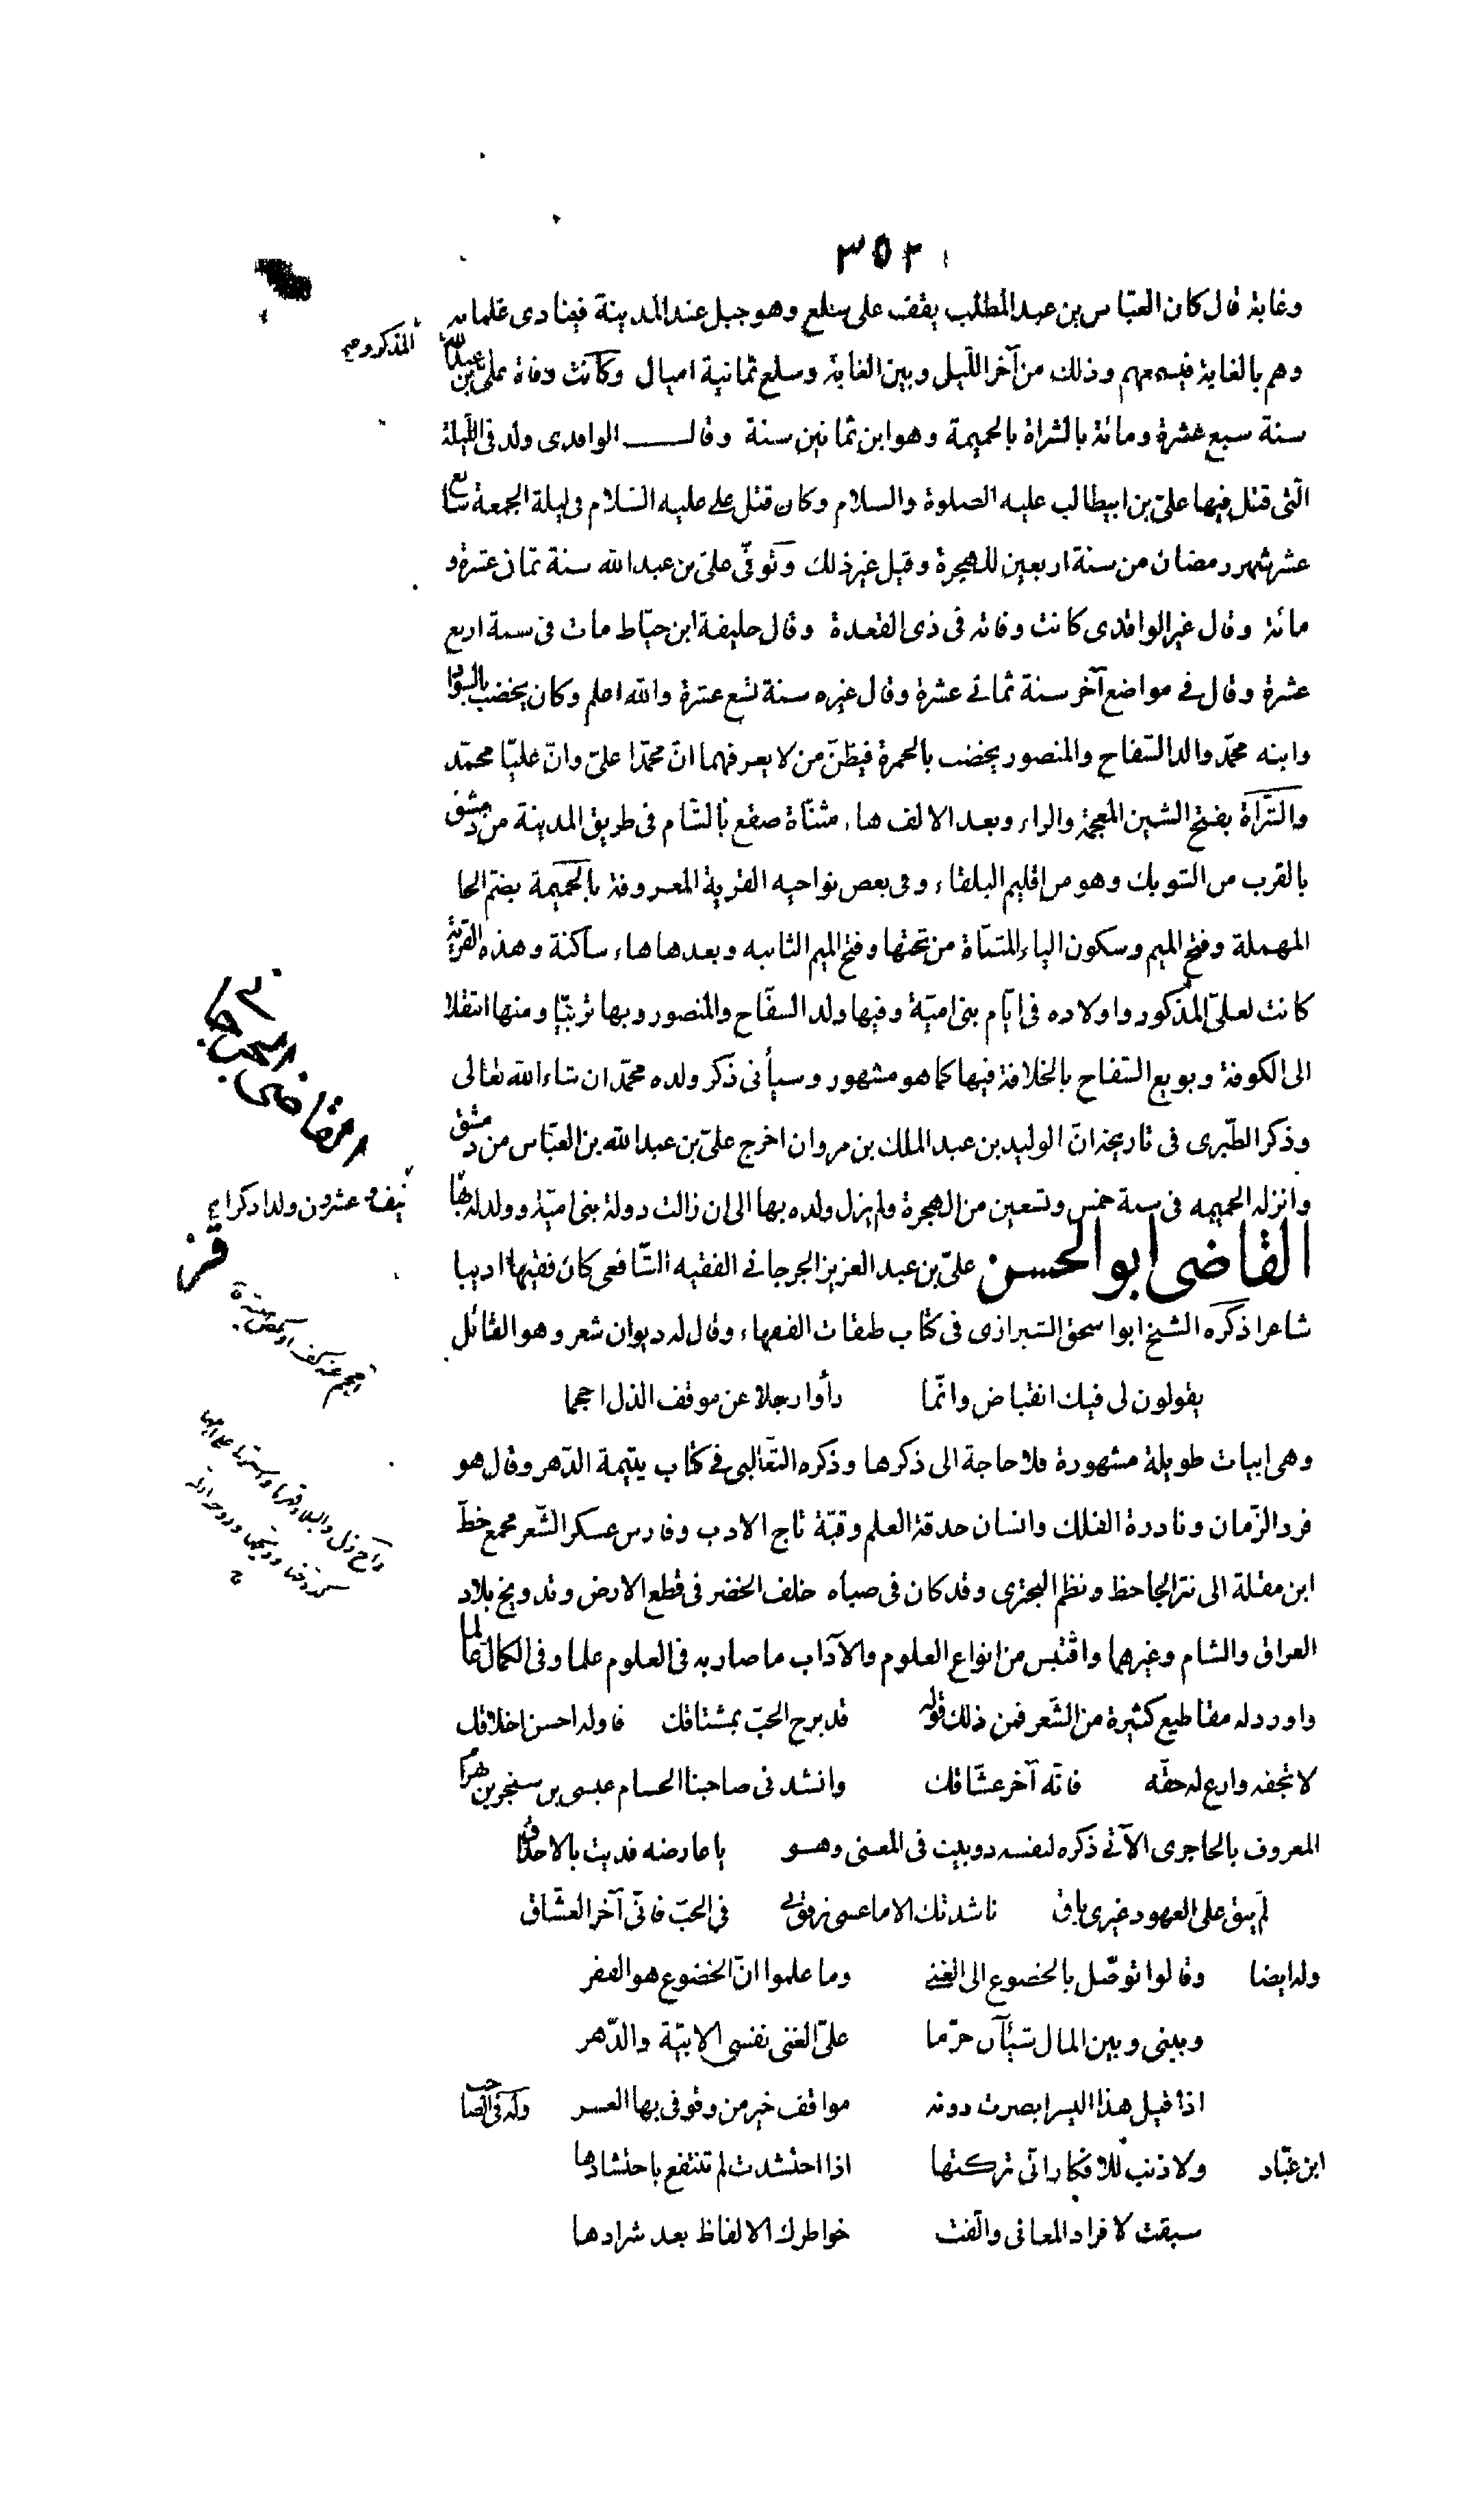 ٣٥٢
وغابة قال كان العبّاس بن عبد المطلب يقف على سلع وهو جبل عند المدينة فينادى غلمانه
وهم بالغابة فيسمعهم وذلك من آخر اللّيل وبين الغابة وسلع ثمانية اميال وكانت وفاة على بن عبد اللّه
المذكور
سنة سبع عشرة ومائة بالشراة بالحميمة وهو ابن ثمانين سنة وقال الواقدى ولد فى اللّيلة
الّتى قتل فيها علىّ بن ابيطالب عليه الصلوة والسلام وكان قتل على عليه السّلام فى ليلة الجمعة سابع
عشر شهر رمضان من سنة اربعين للهجرة وقيل غير ذلك وتوفّى علىّ بن عبد الله سنة ثمان عشرة و
مائة وقال غير الواقدى كانت وفاته فى ذى القعدة وقال خليفة ابن خيّاط مات فى سنة اربع
عشرة وقال فى مواضع آخر سنة ثمانى عشرة وقال غيره سنة تسع عشرة والله اعلم وكان يخضب بالسّواد
وابنه محمّد والد السّفاح والمنصور يخضب بالحمرة فيظنّ من لا يعرفهما انّ محمّدا علىّ وانّ عليّا محمّد
والشّراة بفتح الشين المعجمة والراء وبعد الالف هاء مثنّاة صقع بالشام فى طريق المدينة من دمشق
بالقرب من الشوبك وهو من اقليم البلقاء وفى بعض نواحيه القرية المعروفة بالحميمة بضم الحا
المهملة وفتح الميم وسكون الياء المثنّاة من تحتها وفتح الميم الثانيه وبعدها هاء ساكنة وهذه القرية
كانت لعلىّ المذكور واولاده فى ايّام بنى اميّة وفيها ولد السفّاح والمنصور وبها تربيّا ومنها انتقلا
الى الكوفة وبويع السّفاح بالخلافة فيها كما هو مشهور وسيأنى ذكر ولده محمّد ان شاء الله تعالى
وذكر الطّبرى فى تاريخه انّ الوليد بن عبد الملك بن مروان اخرج علىّ بن عبد الله بن العبّاس من دمشق
وانزله الحميمه فى سنة خمس وتسعين من الهجرة ولم يزل ولده بها الى ان زالت دولة بنى اميّة وولد له بها
نيف وعشرون ولدا ذكرا
القاضى الجرجانى
القاضى ابو الحسن علىّ بن عبد العزيز الجرجانى الفقيه الشّافعى كان فقيها اديبا
شاعرا ذكره الشيخ ابو اسحق الشيرازى فى كتاب طبقات الفقهاء وقال له ديوان شعر وهو القائل
يقولون لى فيك انقباض وانّما رأوا رجلا عن موقف الذل احجما
وهى ابيات طويلة مشهورة فلا حاجة الى ذكرها وذكره الثّعالبى فى كتاب يتيمة الدّهر وقال هو
فرد الزّمان ونادرة الفلك وانسان حدقة العلم وقبّة تاج الادب وفارس عسكر الشّعر مجمع خطّ
ابن مقلة الى نثر الجاحظ ونظم البحترى وقد كان فى صباه خلف الخضر فى قطع الارض وتدويخ بلاد
العراق والشام وغيرهما واقتبس من انواع العلوم والآداب ما صار به فى العلوم علما وفى الكمال عالما
واورد له مقاطيع كثيرة من الشّعر فمن ذلك قوله قد برح الحبّ بمشتاقك فاوله احسن اخلاقك
لا تجفه وارع له حقّه فانّه آخر عشّاقك وانشدنى صاحبنا الحسام عيسى بن سنجر بن بهرام
المعروف بالحاجرى الآتى ذكره لنفسه دوبيت فى المعنى وهو يا عارضه فديت بالاحداق
لم يبق على العهود غيرى باق ناشدتك الا ما عسى ترفق بى فى الحبّ فانّى آخر العشّاق
وله ايضا وقالوا توصّل بالخضوع الى الغنى وما علموا انّ الخضوع هو الفقر
وبينى وبين المال شيآن حرّما علىّ الغنى نفسى الابيّة والدّهر
اذا قيل هذا اليسر ابصرت دونه مواقف خير من وقوفى بها العسر وله فى الصاحب
ابن عبّاد ولا ذنب للافكار انّى تركتها اذا احتشدت لم تنتفع باحتشادها
سبقت لافراد المعانى والّفت خواطرك الالفاظ بعد شرادها